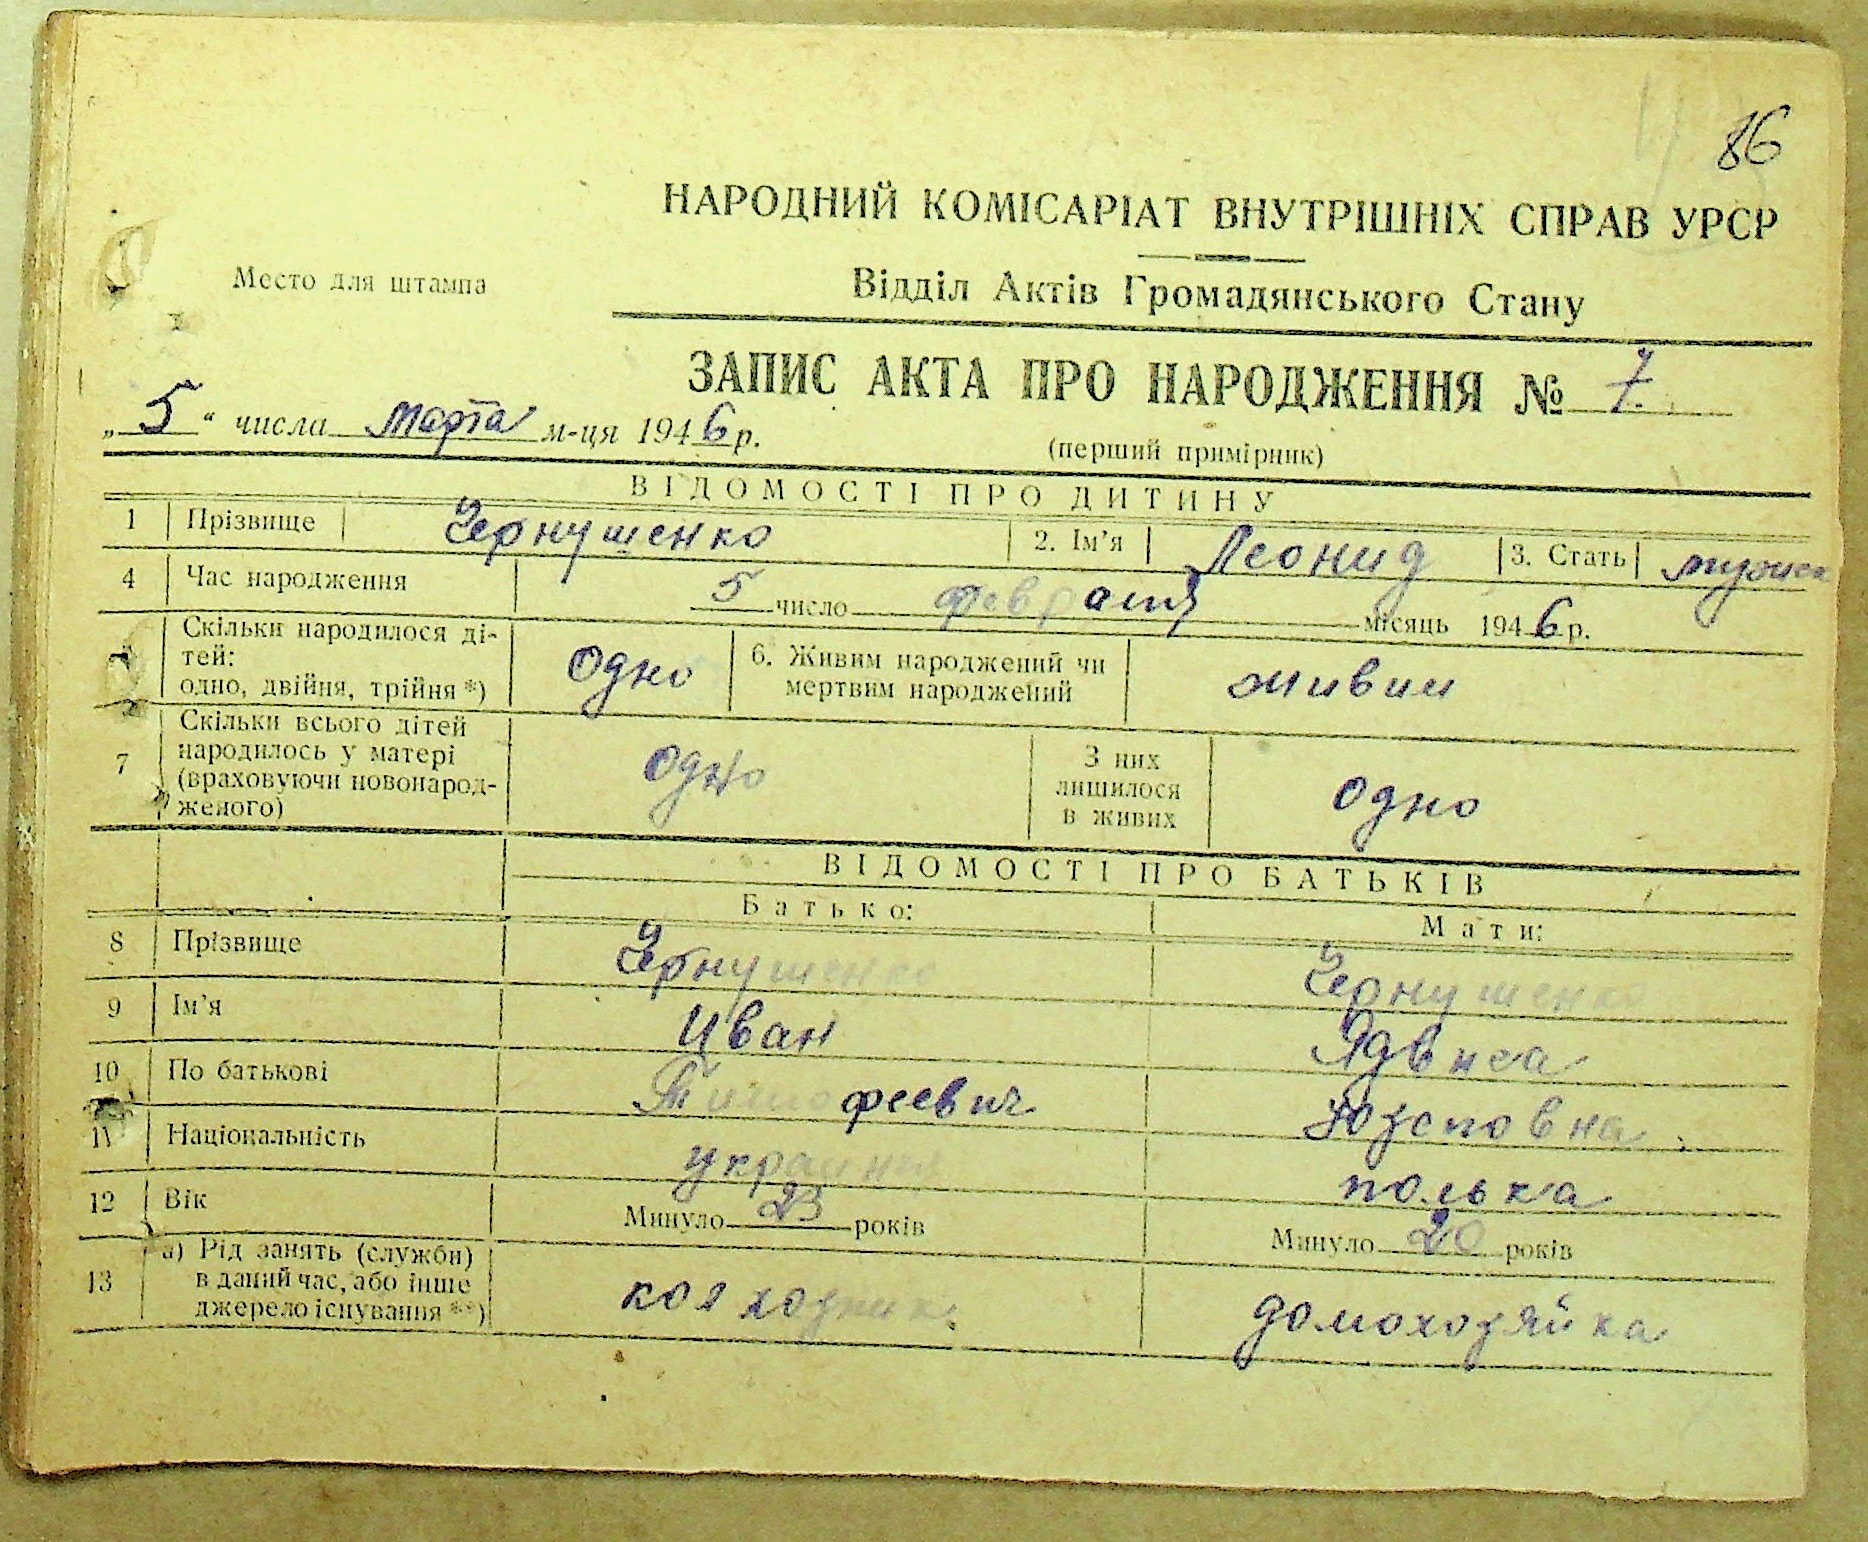 86
НАРОДНИЙ КОМІСАРІАТ ВНУТРІШНІХ СПРАВ УРСР
Место для штампа
Відділ Актів Громадянського Стану
ЗАПИС АКТА ПРО НАРОДЖЕННЯ № 7.
„5“ числа марта м-ця 1946 р.
(перший примірник)
ВІДОМОСТІ ПРО ДИТИНУ
1 Прізвище Чернушенко 2. Ім’я Леонид 3. Стать мужск
4 Час народження 5 число февраля місяць 1946 р.
Скільки народилося ді-
тей:
одно, двійня, трійня *) одно 6. Живим народжений чи
мертвим народжений живим
7 Скільки всього дітей
народилось у матері
(враховуючи новонарод-
женого) одно З них
лишилося
в живих одно
ВІДОМОСТІ ПРО БАТЬКІВ
Батько: Мати:
8 Прізвище Чернушенко Чернушенко
9 Ім’я Иван Ядвиса
10 По батькові Тимофеевич Юзеповна
11 Національність украинец полька
12 Вік Минуло 23 років Минуло 20 років
13 а) Рід занять (служби)
в даний час, або інше
джерело існування **) колхозник. домохозяйка